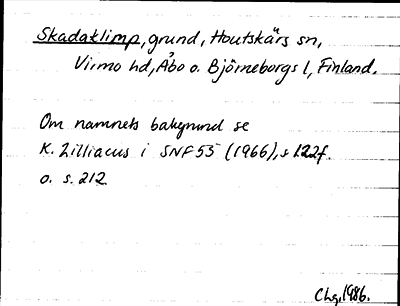 Skadaklimp, grund, Houtskärs sn,
Virmo hd, Åbo o. Björneborgs l, Finland.
Om namnets bakgrund se
K. Zilliacus i SNF 55 (1966), s 122f.
o. s. 212.
Chg, 1986.